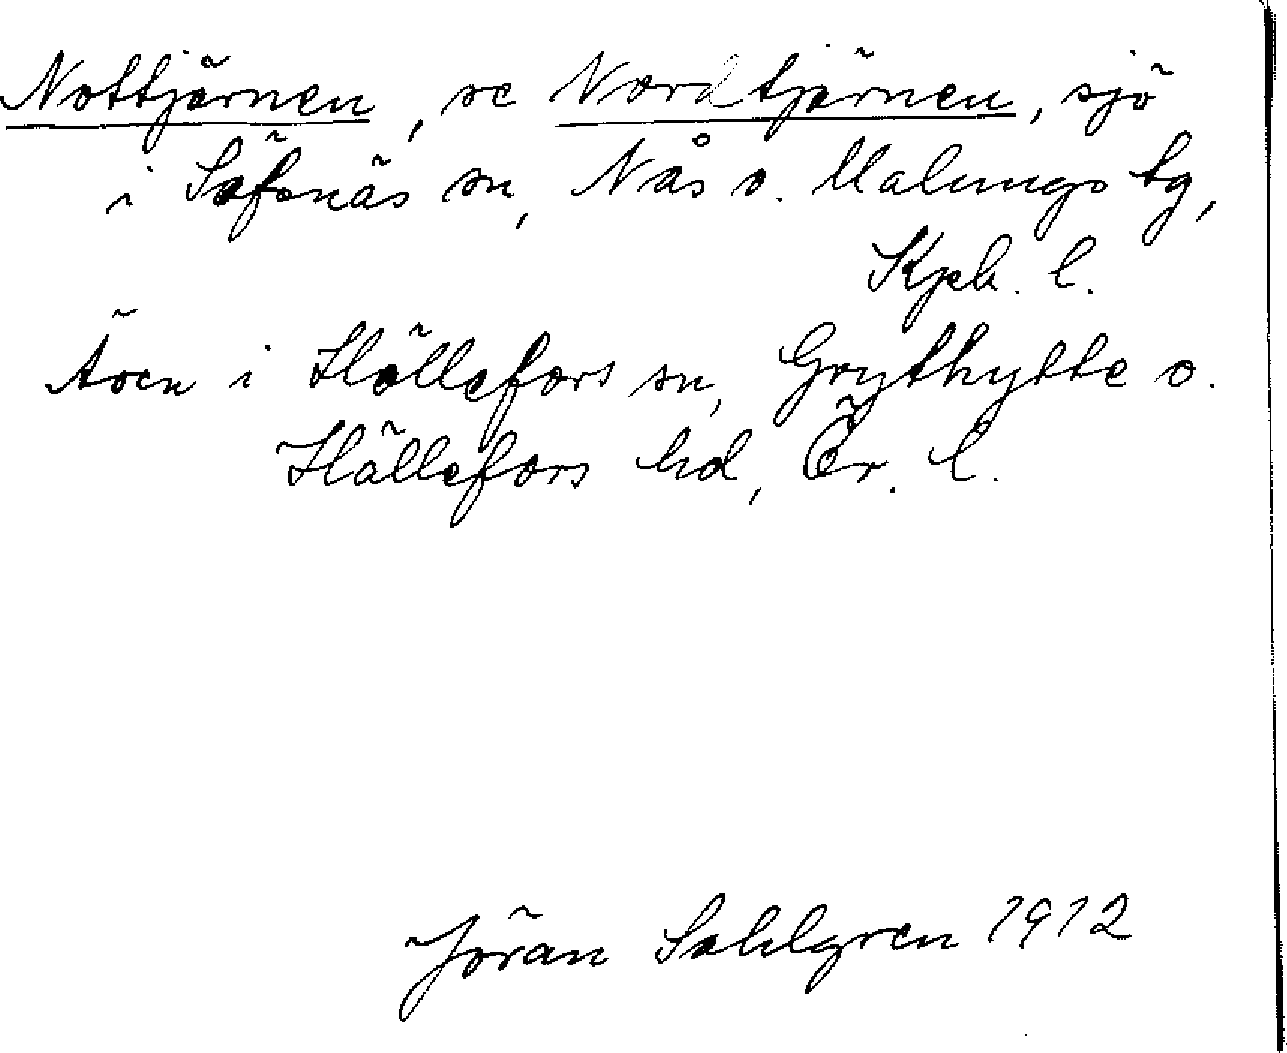 Nottjärnen, se Nordtjärnen, sjö
i Säfsnäs sn, Nås o. Malungs tg,
Kpb. l.
Även i Hällefors sn, Grythytte o.
Hällefors hd, Ör. l.
Jöran Sahlgren 1912